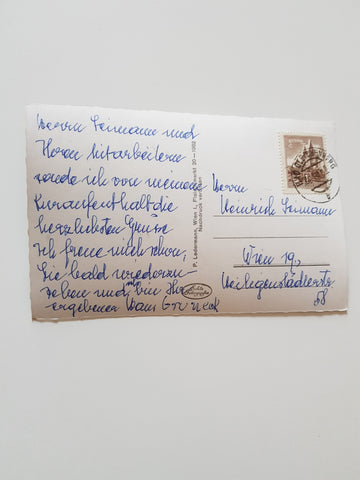 Herrn Leimann und
Ihren Mitarbeitern
sende ich von meinem
Kuraufenthalt die
herzlichsten Grüsse
Ich freue mich schon,
Sie bald wiederzu-
sehen und bin Ihr
ergebener Hans
P. Ledermann, Wien I., Fleischmarkt 20 — 1962
Nachdruck verboten
Herrn
Heinrich Leimann
Wien 19.,
Heiligenstädterstr.